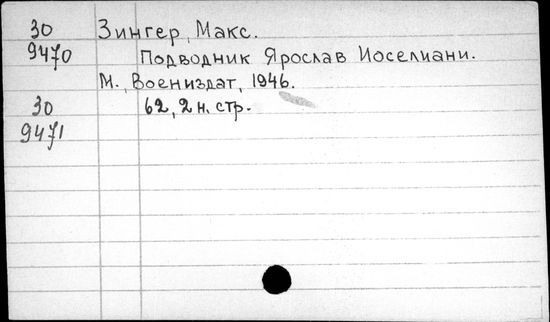 30 Зингер, Макс.
9470 Подводник Ярослав Иоселиани.
М., Воениздат, 1946.
30 62, 2 н. стр.
9471